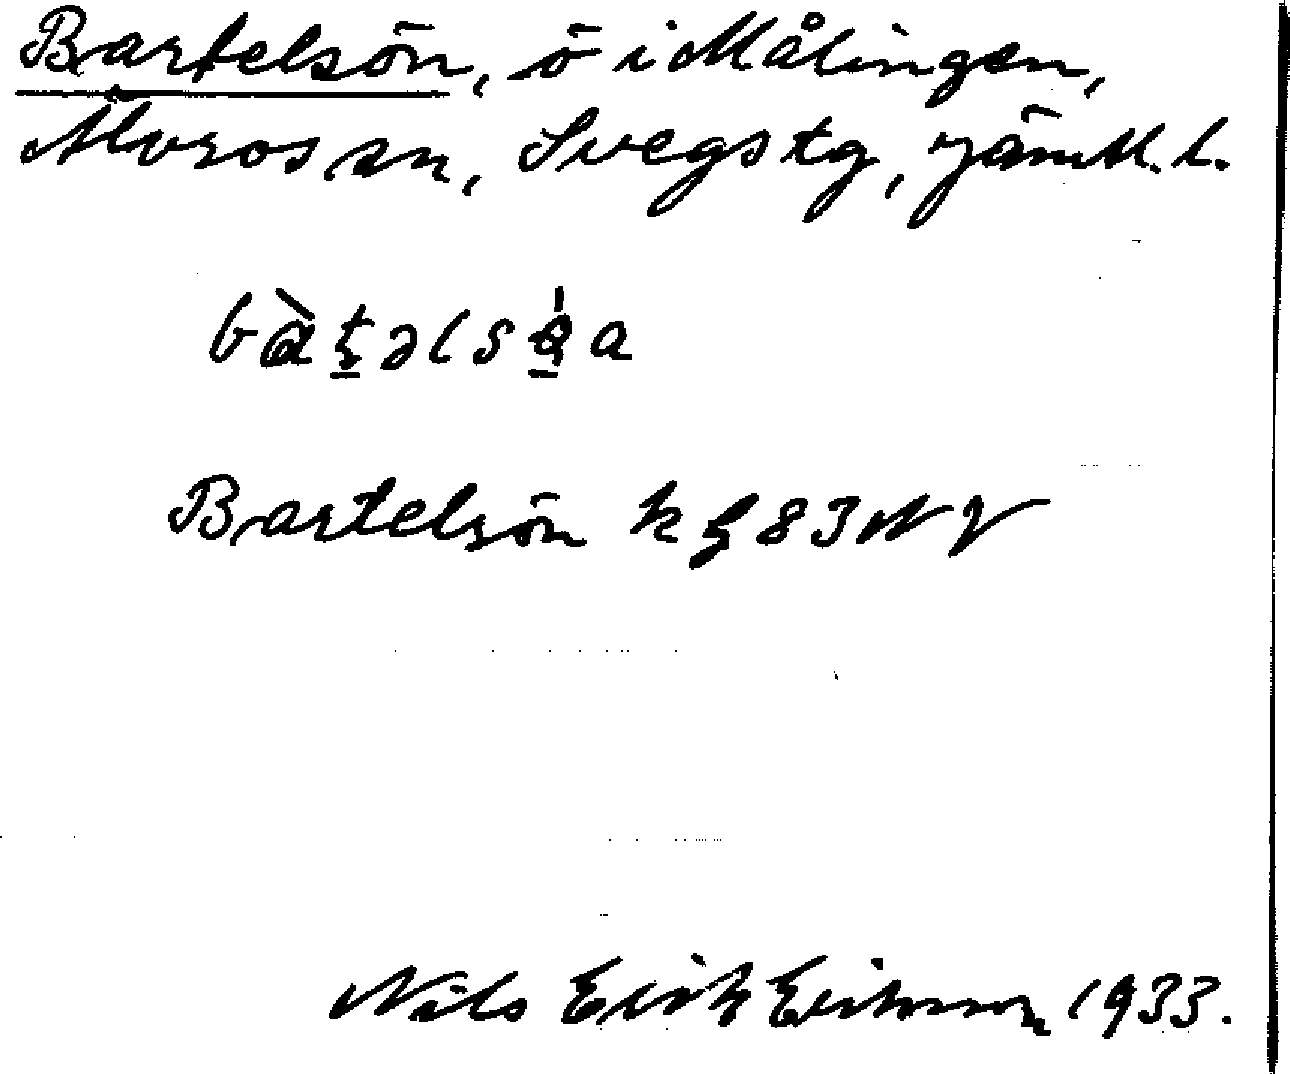 Bartelsön, ö i Målingen,
Älvros sn, Svegs tg, Jämtl. l.
Bartelsön k bl 83 NV
Nils Erik Eriksson 1933.